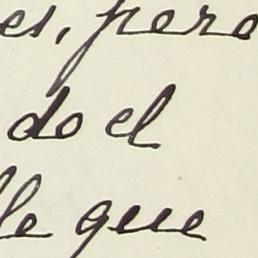 es, pero
do el
lle que